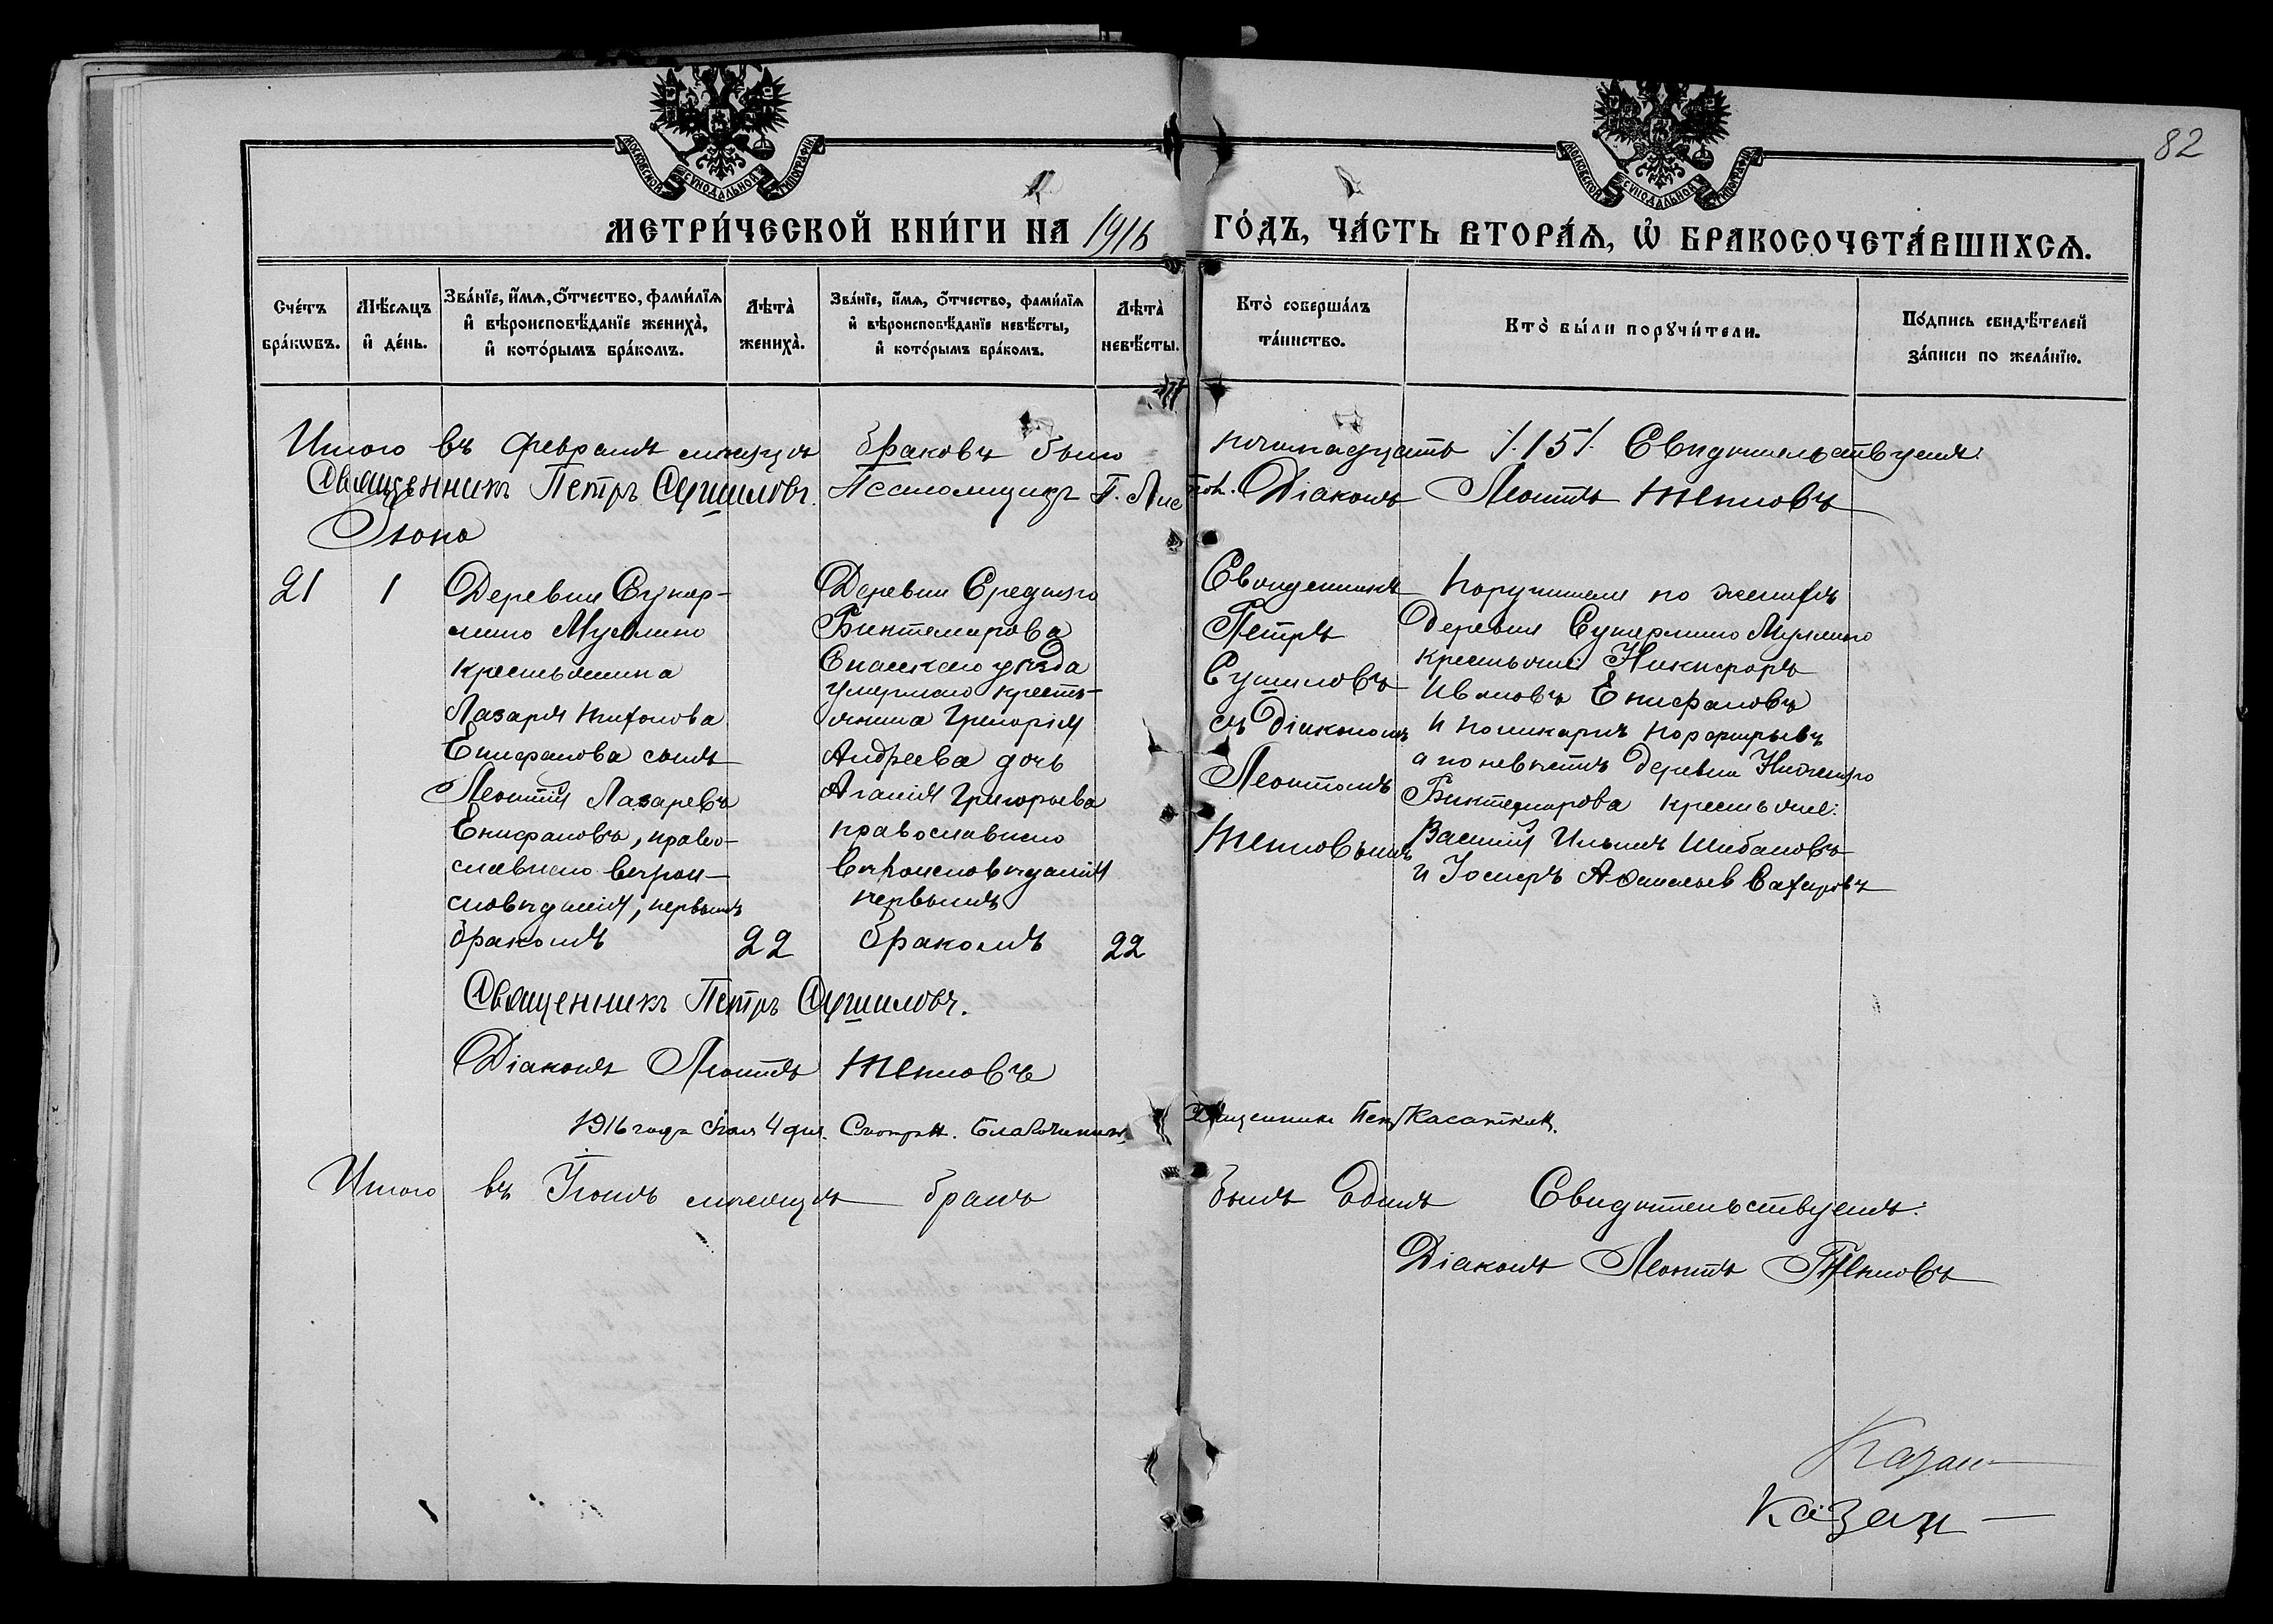 82
МОСКОВСКОЙ СУНОДАЛЬНОЙ ТИПОГРАФІИ
МОСКОВСКОЙ СУНОДАЛЬНОЙ ТИПОГРАФІИ
МЕТРИ́ЧЕСКОЙ КНИ́ГИ НА 1916 ГО́ДЪ, ЧА́СТЬ ВТОРА́Ѧ, Ѽ БРАКОСОЧЕТА́ВШИХСѦ.
Сче́тъ бра́кѡвъ.
Мѣ́сѧцъ и҆ де́нь.
Зва́нїе, и҆́мѧ, ѻ҆́тчество, фами́лїѧ
и҆ вѣроисповѣ́данїе жениха̀,
и҆ кото́рымъ бра́комъ.
Лѣта̀ жениха̀.
Зва́нїе, и҆́мѧ, ѻ҆́тчество, фами́лїѧ
и҆ вѣроисповѣ́данїе невѣ́сты,
и҆ кото́рымъ бра́комъ.
Лѣта̀ невѣ́сты.
Кто̀ соверша́лъ
та́инство.
Кто̀ бы́ли порꙋчи́тели.
По́дпись свидѣ́телей
за́писи по жела́нїю.
Итого въ Февралѣ мѣсяцѣ браковъ было пятнадцать /.15/. Свидѣтельствуемъ:
Священникъ Петръ Сушиловъ. Псаломщикъ Діаконъ Леонтъ Тепловъ
Іюнь
21
1
Деревни Сункар-
лино Муслино
крестьянина
Лазаря
Епифанова сынъ
Леонтій Лазаревъ
Епифановъ, право-
славнаго вѣрои-
сповѣданія, первымъ
бракомъ
22
Деревни Средняго
Биктемирова
Спасскаго уѣзда
умершаго кресть-
янина Григорія
Андреева дочь
Агапія Григорьева
православнаго
вѣроисповѣданія
первымъ
бракомъ
22
Священникъ
Петръ
Сушиловъ
съ Діакономъ
Леонтомъ
Тепловымъ
Поручители по женихѣ
деревни
крестьяне: Никифоръ
Ивановъ Епифановъ
и Поликарпъ Порфирьевъ
а по невѣстѣ деревни Нижняго
Биктемирова крестьяне:
Василій Ильинъ Шибановъ
и Іосифъ
Священникъ Петръ Сушиловъ.
Діаконъ Леонтъ Тепловъ
1916 года Іюля 4 дня. Смотрѣлъ. Благочинный Священникъ Петръ Касаткинъ.
Итого въ Іюнѣ мѣсяцѣ бракъ былъ одинъ Свидѣтельствуемъ:
Діаконъ Леонтъ Тепловъ
Казан
Казан